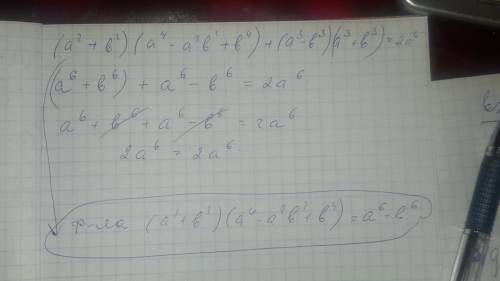 (a² + b²)(a⁴ - a²b² + b⁴) + (a³ - b³)(a³ + b³) = 2a⁶
(a⁶ + b⁶) + a⁶ - b⁶ = 2a⁶
a⁶ + b⁶ + a⁶ - b⁶ = 2a⁶
2a⁶ = 2a⁶
ф-ла (a² + b²)(a⁴ - a²b² + b⁴) = a⁶ - b⁶